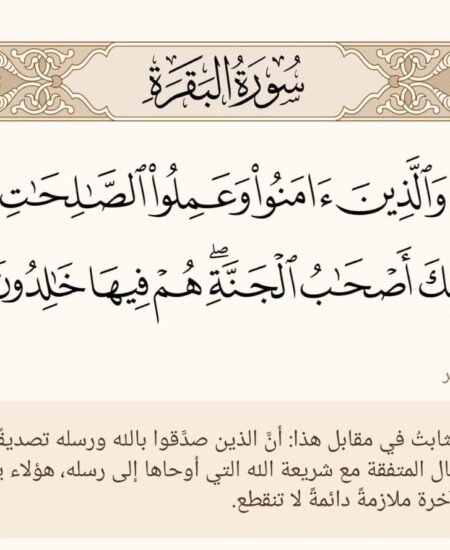 سُورَةُ البَقَرَةِ
وَٱلَّذِينَ ءَامَنُوا۟ وَعَمِلُوا۟ ٱلصَّـٰلِحَـٰتِ
أَصْحَـٰبُ ٱلْجَنَّةِ ۖ هُمْ فِيهَا خَـٰلِدُونَ
في مقابل هذا: أنَّ الذين صدَّقوا بالله ورسله
المتفقة مع شريعة الله التي أوحاها إلى رسله، هؤلاء
ملازمةً دائمةً لا تنقطع.